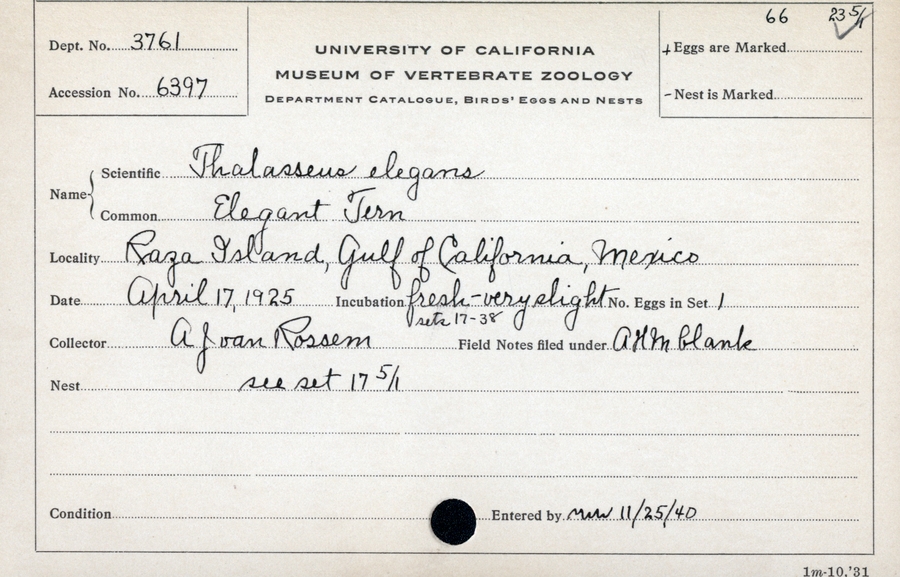 66 23 5/1
Dept. No. 3761
UNIVERSITY OF CALIFORNIA
+ Eggs are Marked
MUSEUM OF VERTEBRATE ZOOLOGY
Accession No. 6397
- Nest is Marked
DEPARTMENT CATALOGUE, BIRDS' EGGS AND NESTS
Name { Scientific Thalasseus elegans
Common Elegant Tern
Locality Raza Island, Gulf of California, Mexico
Date April 17, 1925 Incubation fresh-very slight No. Eggs in Set 1
sets 17-38
Collector A J van Rossem Field Notes filed under AHM blank
Nest see set 17 5/1
Condition Entered by 11/25/40
1m-10,'31